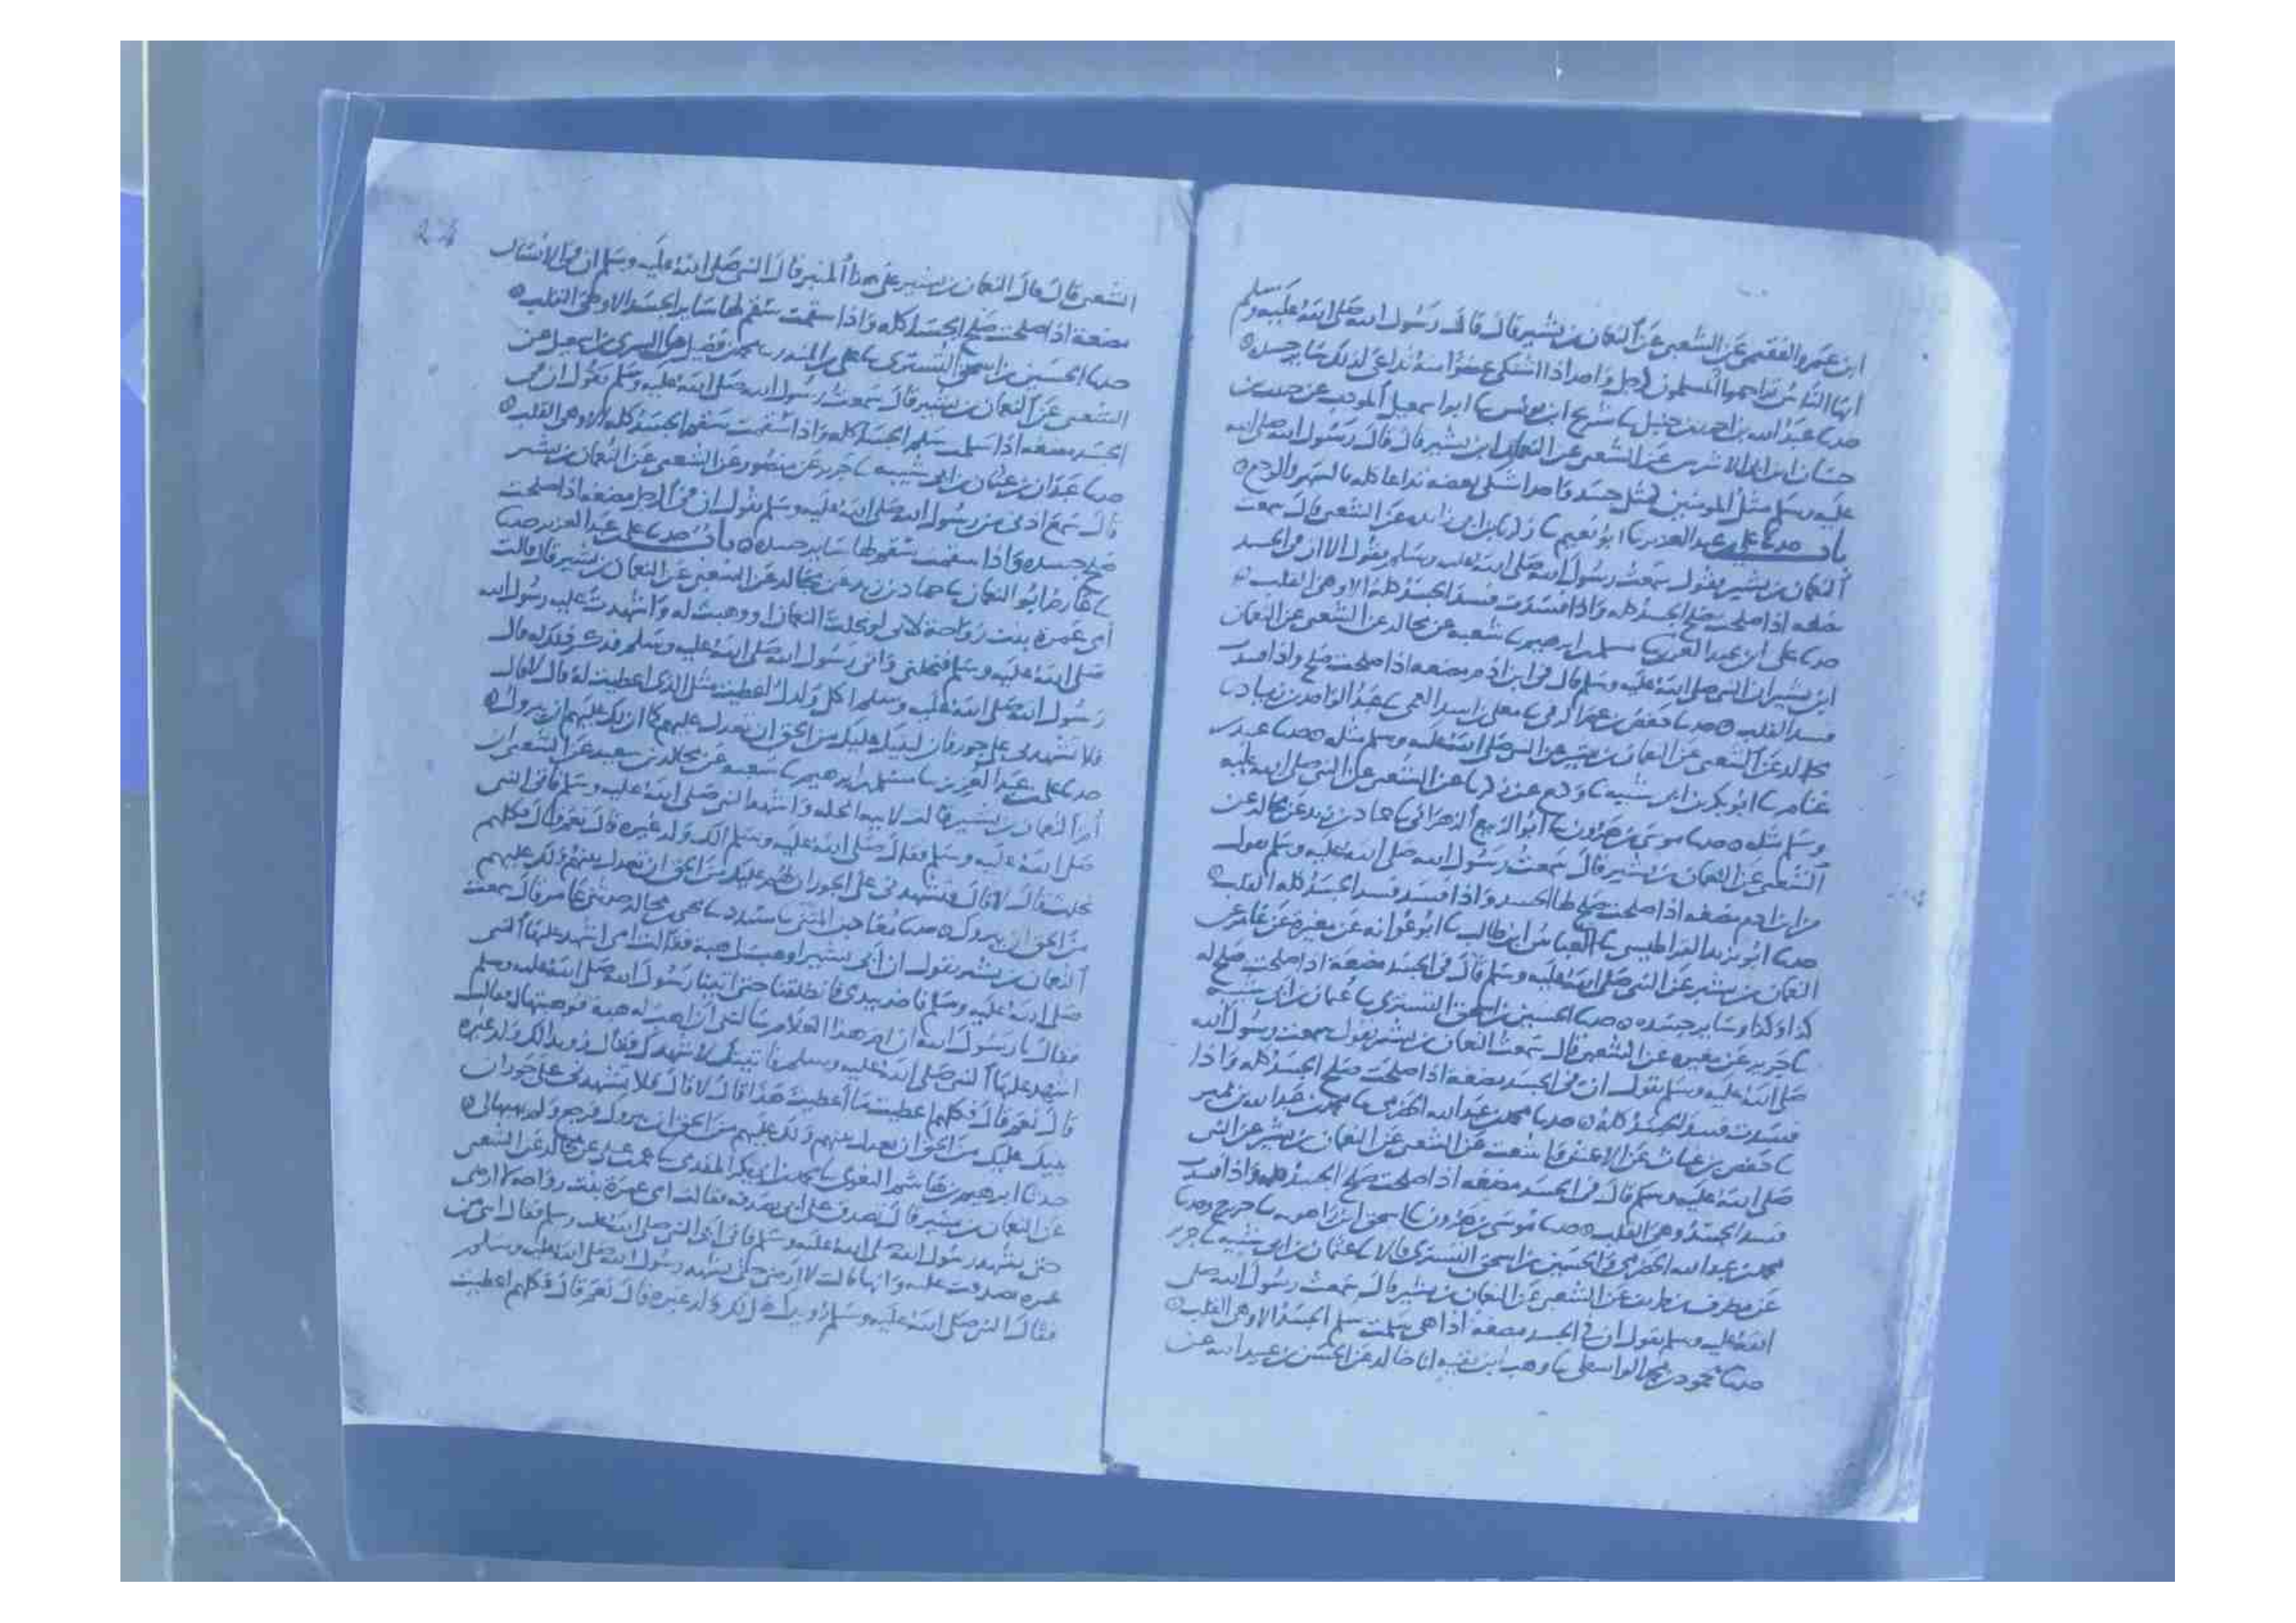 ابن عمرو الفقيمي عن الشعبي عن النعمان بن بشير قال قال رسول الله صلى الله عليه وسلم
ايها الناس تراحموا المسلمون كرجل واحد اذا اشتكى عضوا منه تداعى لذلك سائر جسده
حدثنا عبد الله بن احمد بن حنبل ثنا سريج ابن يونس ثنا ابو اسمعيل المودب عن
حسان ابن ابي الاشرس عن الشعبي عن النعمان ابن بشير قال قال رسول الله صلى الله
عليه وسلم مثل المومنين كمثل جسد واحد اشتكى بعضه تداعا كله بالسهر والوجع
باب حدثنا علي بن عبد العزيز ثنا ابو نعيم ثنا زكريا بن ابي زائده عن الشعبي قال سمعت
النعمان بن بشير يقول سمعت رسول الله صلى الله عليه وسلم يقول الا ان في الجسد
مضغه اذا صلحت صلح الجسد كله واذا فسدت فسد الجسد كله الا وهي القلب
حدثنا علي ابن عبد العزيز ثنا مسلم بن ابرهيم ثنا شعبه عن مجالد عن الشعبي عن النعمان
ابن بشير ان النبي صلى الله عليه وسلم قال في ابن ادم مضغه اذا صلحت صلح واذا فسدت
فسد القلب حدثنا حفص بن عمر الرقي ثنا معلى بن اسد العمي ثنا عبد الواحد بن زياد ثنا
مجالد عن الشعبي عن النعمان بن بشير عن النبي صلى الله عليه وسلم مثله حدثنا عبيد بن
غنام ثنا ابو بكر بن ابي شيبه ثنا وكيع عن زكريا عن الشعبي عن النبي صلى الله عليه
وسلم مثله حدثنا موسى بن هرون ثنا ابو الربيع الزهراني ثنا حماد بن زيد عن مجالد عن
الشعبي عن النعمان بن بشير قال سمعت رسول الله صلى الله عليه وسلم يقول
من ابن ادم مضغه اذا صلحت صلح لها الجسد واذا فسد فسد الجسد كله القلب
حدثنا ابو يزيد القراطيسي ثنا العباس ابن طالب ثنا ابو عوانه عن مغيرة عن عامر عن
النعمان بن بشير عن النبي صلى الله عليه وسلم قال في الجسد مضغة اذا صلحت صلح له
كذا وكذا وسائر جسده حدثنا الحسين بن اسحق التستري ثنا عثمان بن ابي شيبه
ثنا جرير عن مغيره عن الشعبي قال سمعت النعمان بن بشير يقول سمعت رسول الله
صلى الله عليه وسلم يقول ان في الجسد مضغه اذا صلحت صلح الجسد كله واذا
فسدت فسد الجسد كله حدثنا محمد بن عبد الله الحضرمي ثنا محمد بن عبد الله بن نمير
ثنا حفص بن غياث عن الاعمش قال سمعت عن الشعبي عن النعمان بن بشير عن النبي
صلى الله عليه وسلم قال في الجسد مضغه اذا صلحت صلح الجسد كله واذا فسدت
فسد الجسد وهي القلب حدثنا موسى بن هرون ثنا اسحق ابن راهويه ثنا جرير وحدثنا
محمد بن عبد الله الحضرمي والحسين بن اسحق التستري قالا ثنا عثمان بن ابي شيبه ثنا جرير
عن مطرف بن طريف عن الشعبي عن النعمان بن بشير قال سمعت رسول الله صلى
الله عليه وسلم يقول ان في الجسد مضغه اذا هي سلمت سلم الجسد الا وهي القلب
حدثنا محمود بن محمد الواسطي ثنا وهب ابن بقيه انا خالد عن الحسن بن عبيد الله عن
الشعبي قال قال النعمان بن بشير على هذا المنبر قال النبي صلى الله عليه وسلم ان في الانسان
مضغة اذا صلحت صلح الجسد كله واذا سقمت سقم لها سائر الجسد الا وهي القلب
حدثنا الحسين بن اسحق التستري ثنا علي بن المنذر ثنا محمد بن فضيل عن السري بن اسمعيل عن
الشعبي عن النعمان بن بشير قال سمعت رسول الله صلى الله عليه وسلم يقول ان في
الجسد مضغه اذا سلمت سلم الجسد كله واذا سقمت سقم الجسد كله الا وهي القلب
حدثنا عبدان بن عثمان بن ابي شيبه ثنا جرير عن منصور عن الشعبي عن النعمان بن بشير
قال سمع اذني من رسول الله صلى الله عليه وسلم يقول ان في الرجل مضغه اذا صلحت
صلح جسده واذا سقمت سقم لها سائر جسده باب حدثنا علي بن عبد العزيز حدثنا
ثنا عارم ابو النعمان ثنا حماد بن زيد عن مجالد عن الشعبي عن النعمان بن بشير قال قالت
امي عمرة بنت رواحة لابي لو نحلت النعمان او وهبت له واشهدت عليه رسول الله
صلى الله عليه وسلم فنحلني واتى رسول الله صلى الله عليه وسلم فذكر ذلك له قال
رسول الله صلى الله عليه وسلم اكل ولدك اعطيت مثل الذي اعطيت له قال لا قال
فلا تشهدني على جور فان لبنيك عليك من الحق ان تعدل عليهم كما ان لك عليهم ان يبروك
حدثنا علي بن عبد العزيز ثنا مسلم بن ابرهيم ثنا شعبه عن مجالد بن سعيد عن الشعبي ان
ام النعمان بن بشير قالت لابيه انحله واشهد النبي صلى الله عليه وسلم فاتى النبي
صلى الله عليه وسلم فقال صلى الله عليه وسلم الك ولد غيره قال نعم قال فكلهم
نحلت قال لا قال فتشهدني على الجور ان لهم عليك من الحق ان تعدل بينهم ولك عليهم
من الحق ان يبروك حدثنا معاذ بن المثنى ثنا مسدد ثنا يحيى عن مجالد حدثني عامر قال سمعت
النعمان بن بشير يقول ان ابي بشيرا وهب لي هبة فقالت امي اشهد عليها النبي
صلى الله عليه وسلم فاخذ بيدي فانطلقنا حتى اتينا رسول الله صلى الله عليه وسلم
فقال يا رسول الله ان ام هذا الغلام سالتني ان اهب له هبة فوهبتها له فقالت
اشهد عليها النبي صلى الله عليه وسلم فاتيتك لاشهدك فقال رويدا الك ولد غيره
قال نعم قال فكلهم اعطيت ما اعطيت هذا قال لا قال فلا تشهدني على جور ان
لبنيك عليك من الحق ان تعدل بينهم ولك عليهم من الحق ان يبروك
حدثنا ابرهيم بن هاشم البغوي ثنا محمد بن ابي بكر المقدمي ثنا عن مجالد عن الشعبي
عن النعمان بن بشير قال تصدق علي ابي بصدقه فقالت امي عمرة بنت رواحه لا ارضى
حتى يشهد رسول الله صلى الله عليه وسلم فاتى ابي النبي صلى الله عليه وسلم فقال ابني من
عمره تصدقت عليه وانها قالت لا ارضى حتى يشهد رسول الله صلى الله عليه وسلم
فقال النبي صلى الله عليه وسلم رويدك هل لك ولد غيره قال نعم قال فكلهم اعطيت